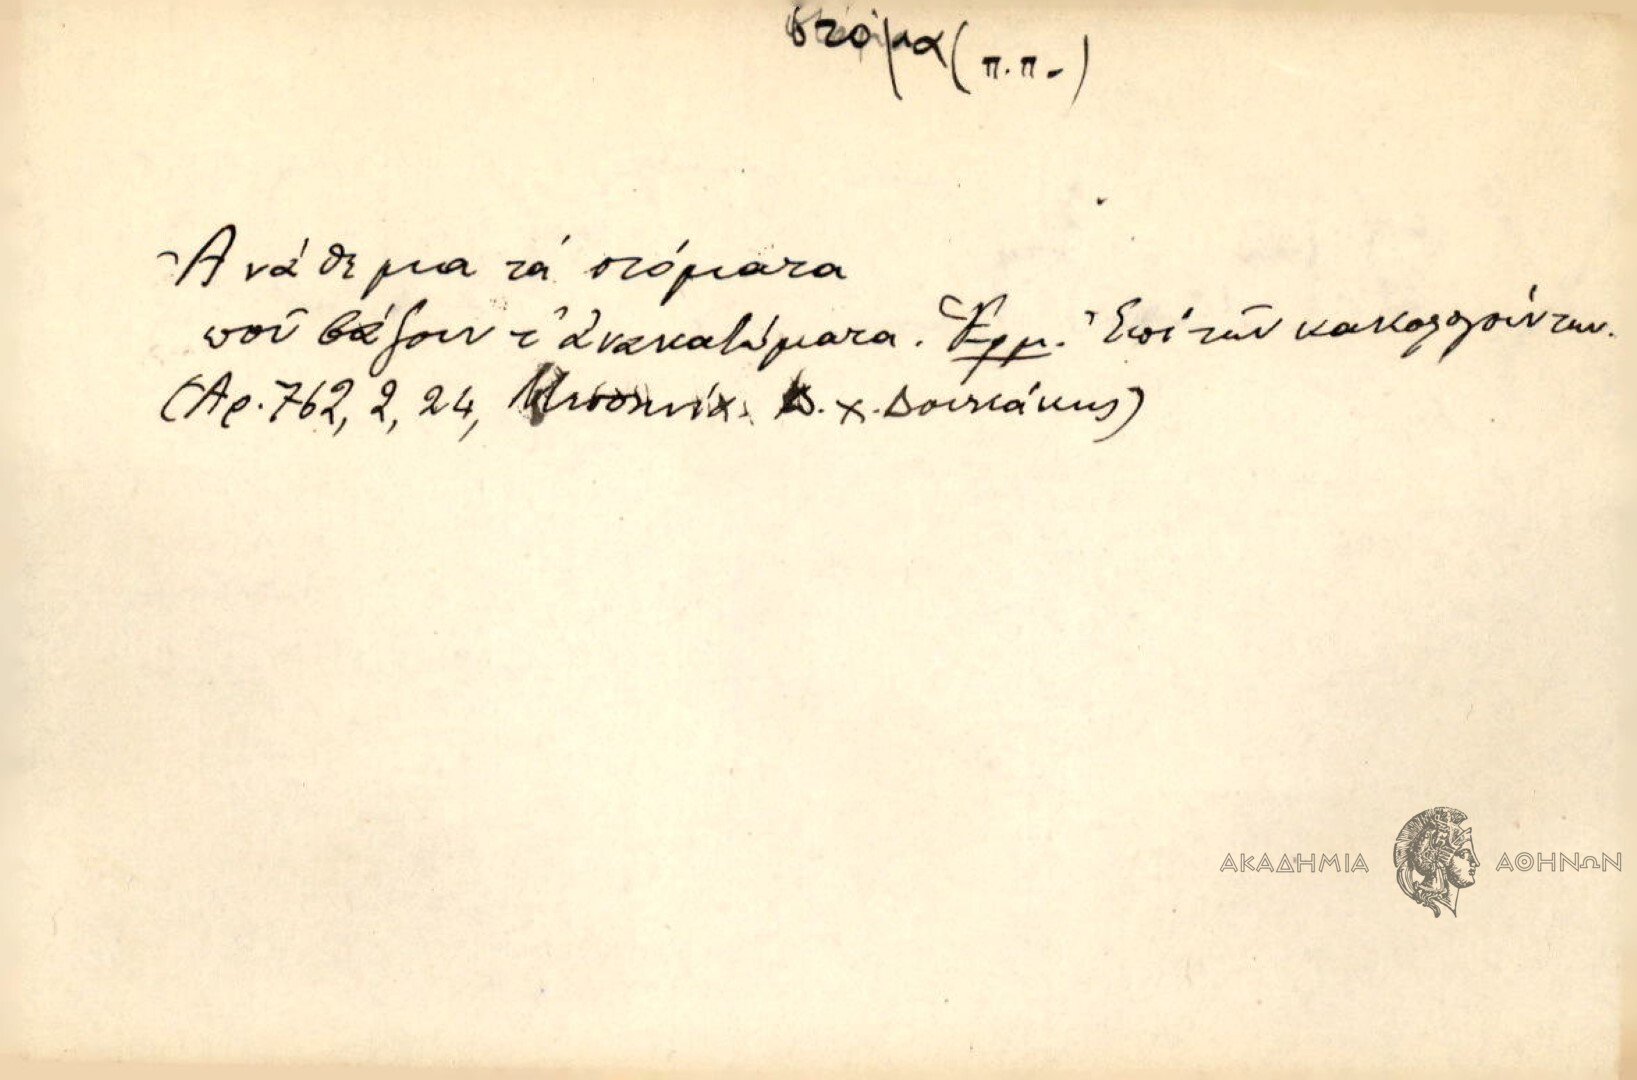 στόμα (π.π.)
Ἀνάθεμια τά στόματα
ποῦ βάζουν τ' ἀνακατώματα. Ἑρμ. Ἐπί τῶν κακολογούντων.
(Αρ. 762, 2, 24, Δ. Χ. Δουκάκης)
ΑΚΑΔΗΜΙΑ ΑΘΗΝΩΝ